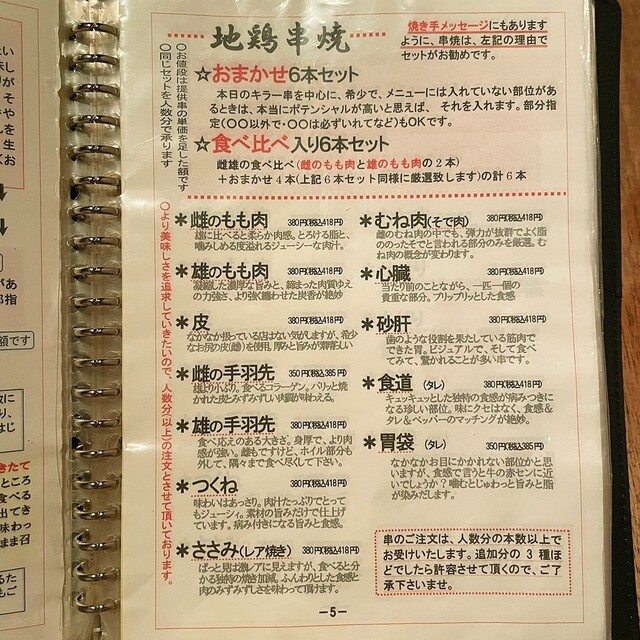 地鶏串焼
焼き手メッセージにもあります
ように、串焼は、左記の理由で
セットがお勧めです。
〇お値段は提供串の単価を足した額です
〇同じセットを人数分で承ります
☆おまかせ6本セット
本日のキラー串を中心に、希少で、メニューには入れていない部位が
あるときは、本当にポテンシャルが高いと思えば、それを入れます。部分指
定(〇〇以外で・〇〇は必ずいれてなど)もOKです。
☆食べ比べ入り6本セット
雌雄の食べ比べ(雌のもも肉と雄のもも肉の2本)
+おまかせ4本(上記6本セット同様に厳選致します)の計6本
〇より美味しさを追求していきたいので、人数分(以上)の注文とさせて頂いております。
*雌のもも肉 380円(税込418円)
雄に比べると柔らか肉感。とろける脂と、
噛みしめる度溢れるジューシーな肉汁。
*雄のもも肉 380円(税込418円)
凝縮した濃厚な旨みと、締まった肉質ゆえ
の力強さ、より強く纏わせた炭香が絶妙
*皮 380円(税込418円)
なかなか扱っている店はない気がしますが、希少
なお尻の皮(雌)を使用。厚みと旨みが素晴らしい
*雌の手羽先 350円(税込385円)
雄より小ぶり。食べるコラーゲン。パリッと焼
かれた皮とみずみずしい肉質が味わえる。
*雄の手羽先 380円(税込418円)
食べ応えのある大きさ。身厚で、より肉
感が強い。雌もですけど、ホイル部分も
外して、隅々まで食べ尽くして下さい。
*つくね 380円(税込418円)
味わいはあっさり。肉汁たっぷりでとって
もジューシィ。素材の旨みだけで仕上げ
ています。病み付きになる旨みと食感。
*ささみ(レア焼き) 380円(税込418円)
ぱっと見は激レアに見えますが、食べると分
かる独特の焼き加減。ふんわりとした食感と
肉のみずみずしさを味わって頂けます。
*むね肉(そで肉) 380円(税込418円)
雌のむね肉の中でも、弾力が抜群でよく脂
ののったそでと言われる部分のみを厳選。む
ね肉の概念が変わります。
*心臓 380円(税込418円)
当たり前のことながら、一匹一個の
貴重な部分。プリップリッとした食感
*砂肝 380円(税込418円)
歯のような役割を果たしている筋肉で
できた胃。ビジュアルで、そして食べ
てみて、驚かれることが多い串です。
*食道(タレ) 380円(税込418円)
キュッキュッとした独特の食感が病みつきに
なる珍しい部位。味にクセはなく、食感&
タレ&ペッパーのマッチングが絶妙。
*胃袋(タレ) 350円(税込385円)
なかなかお目にかかれない部位かと思
いますが、食感で言うと牛の赤センに近
いでしょうか?噛むとじゅわっと旨みと脂
が染みだします。
串のご注文は、人数分の本数以上で
お受けいたします。追加分の3種ほ
どでしたら許容させて頂くので、ご了
承下さいませ。
-5-